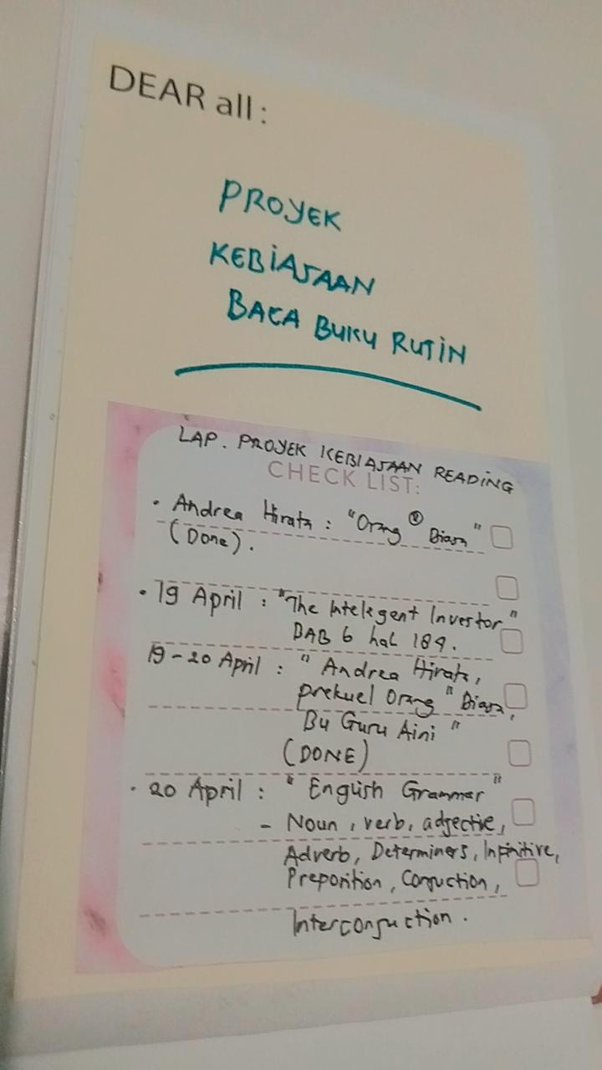 DEAR all :
PROYEK
KEBIASAAN
BACA BUKU RUTIN
LAP. PROYEK KEBIASAAN READING
CHECK LIST:
• Andrea Hirata : "Orang ② Biasa"
(Done).
• 19 April : "The Intelegent Investor"
BAB 6 hal 189.
19-20 April : "Andrea Hirata,
prekuel Orang " Biasa,
Bu Guru Aini "
(DONE)
• 20 April : " English Grammar "
- Noun, verb, adjective,
Adverb, Determiners, Infinitive,
Preposition, Conjuction,
Interconjuction.